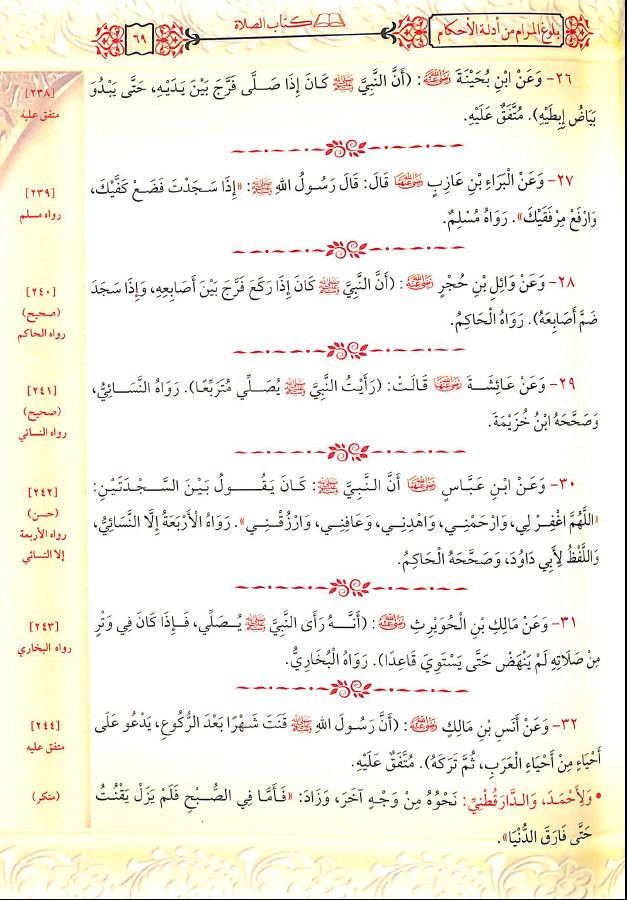 بلوغ المرام من أدلة الأحكام
كتاب الصلاة
٦٩
٢٦- وَعَنْ ابْنِ بُحَيْنَةَ رضي الله عنه: (أَنَّ النَّبِيَّ ﷺ كَانَ إِذَا صَلَّى فَرَّجَ بَيْنَ يَدَيْهِ، حَتَّى يَبْدُوَ
بَيَاضُ إِبِطَيْهِ). مُتَّفَقٌ عَلَيْهِ.
[٢٣٨]
متفق عليه
٢٧- وَعَنْ الْبَرَاءِ بْنِ عَازِبٍ رضي الله عنهما قَالَ: قَالَ رَسُولُ اللهِ ﷺ: «إِذَا سَجَدْتَ فَضَعْ كَفَّيْكَ،
وَارْفَعْ مِرْفَقَيْكَ». رَوَاهُ مُسْلِمٌ.
[٢٣٩]
رواه مسلم
٢٨- وَعَنْ وَائِلِ بْنِ حُجْرٍ رضي الله عنه: (أَنَّ النَّبِيَّ ﷺ كَانَ إِذَا رَكَعَ فَرَّجَ بَيْنَ أَصَابِعِهِ، وَإِذَا سَجَدَ
ضَمَّ أَصَابِعَهُ). رَوَاهُ الْحَاكِمُ.
[٢٤٠]
(صحيح)
رواه الحاكم
٢٩- وَعَنْ عَائِشَةَ رضي الله عنها قَالَتْ: (رَأَيْتُ النَّبِيَّ ﷺ يُصَلِّي مُتَرَبِّعًا). رَوَاهُ النَّسَائِيُّ،
وَصَحَّحَهُ ابْنُ خُزَيْمَةَ.
[٢٤١]
(صحيح)
رواه النسائي
٣٠- وَعَنْ ابْنِ عَبَّاسٍ رضي الله عنهما أَنَّ النَّبِيَّ ﷺ: كَانَ يَقُولُ بَيْنَ السَّجْدَتَيْنِ:
«اللَّهُمَّ اغْفِرْ لِي، وَارْحَمْنِي، وَاهْدِنِي، وَعَافِنِي، وَارْزُقْنِي». رَوَاهُ الْأَرْبَعَةُ إِلَّا النَّسَائِيَّ،
وَاللَّفْظُ لِأَبِي دَاوُدَ، وَصَحَّحَهُ الْحَاكِمُ.
[٢٤٢]
(حسن)
رواه الأربعة
إلا النسائي
٣١- وَعَنْ مَالِكِ بْنِ الْحُوَيْرِثِ رضي الله عنه: (أَنَّهُ رَأَى النَّبِيَّ ﷺ يُصَلِّي، فَإِذَا كَانَ فِي وَتْرٍ
مِنْ صَلَاتِهِ لَمْ يَنْهَضْ حَتَّى يَسْتَوِيَ قَاعِدًا). رَوَاهُ الْبُخَارِيُّ.
[٢٤٣]
رواه البخاري
٣٢- وَعَنْ أَنَسِ بْنِ مَالِكٍ رضي الله عنه: (أَنَّ رَسُولَ اللهِ ﷺ قَنَتَ شَهْرًا بَعْدَ الرُّكُوعِ، يَدْعُو عَلَى
أَحْيَاءٍ مِنْ أَحْيَاءِ الْعَرَبِ، ثُمَّ تَرَكَهُ). مُتَّفَقٌ عَلَيْهِ.
[٢٤٤]
متفق عليه
• وَلِأَحْمَدَ، وَالدَّارَقُطْنِيِّ: نَحْوُهُ مِنْ وَجْهٍ آخَرَ، وَزَادَ: «فَأَمَّا فِي الصُّبْحِ فَلَمْ يَزَلْ يَقْنُتُ
حَتَّى فَارَقَ الدُّنْيَا».
(منكر)